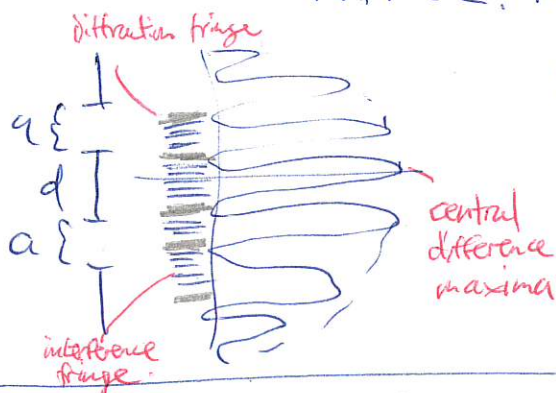 diffraction fringe
a
d
a
central
difference
maxima
interference
fringe